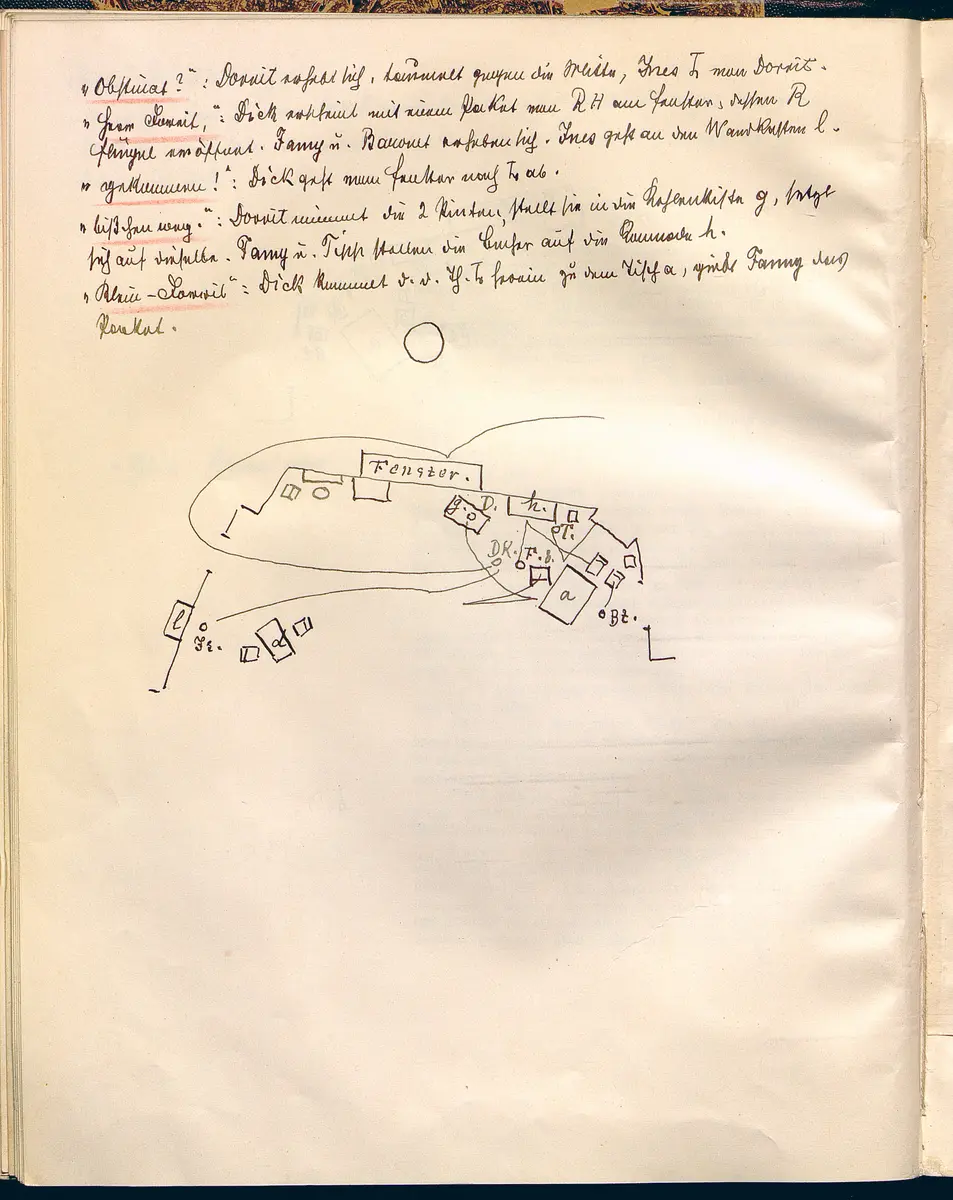 „Obstinat?“: Dorrit erhebt sich, taumelt gegen die Mitte, Ines L von Dorrit.
„Herr Dorrit,“: Dick erscheint mit einem Packet von RH am Fenster, dessen R
Flügel er öffnet. Fanny u. Baronet erheben sich. Ines geht an den Wandkasten l.
„gekommen!“: Dick geht vom Fenster nach L ab.
„bißchen weg.“: Dorrit nimmt die 2 Pinten, stellt sie in die Kohlenkiste g, setzt
sich auf dieselbe. Fanny u. Tipp stellen die Becher auf die Commode h.
„Klein-Dorrit“: Dick kommt d. d. Th. L herein zu dem Tisch a, giebt Fanny das
Packet.
Fenster.
g. D. h.
T.
DK. F. b.
a
l
Is. d
Bt.